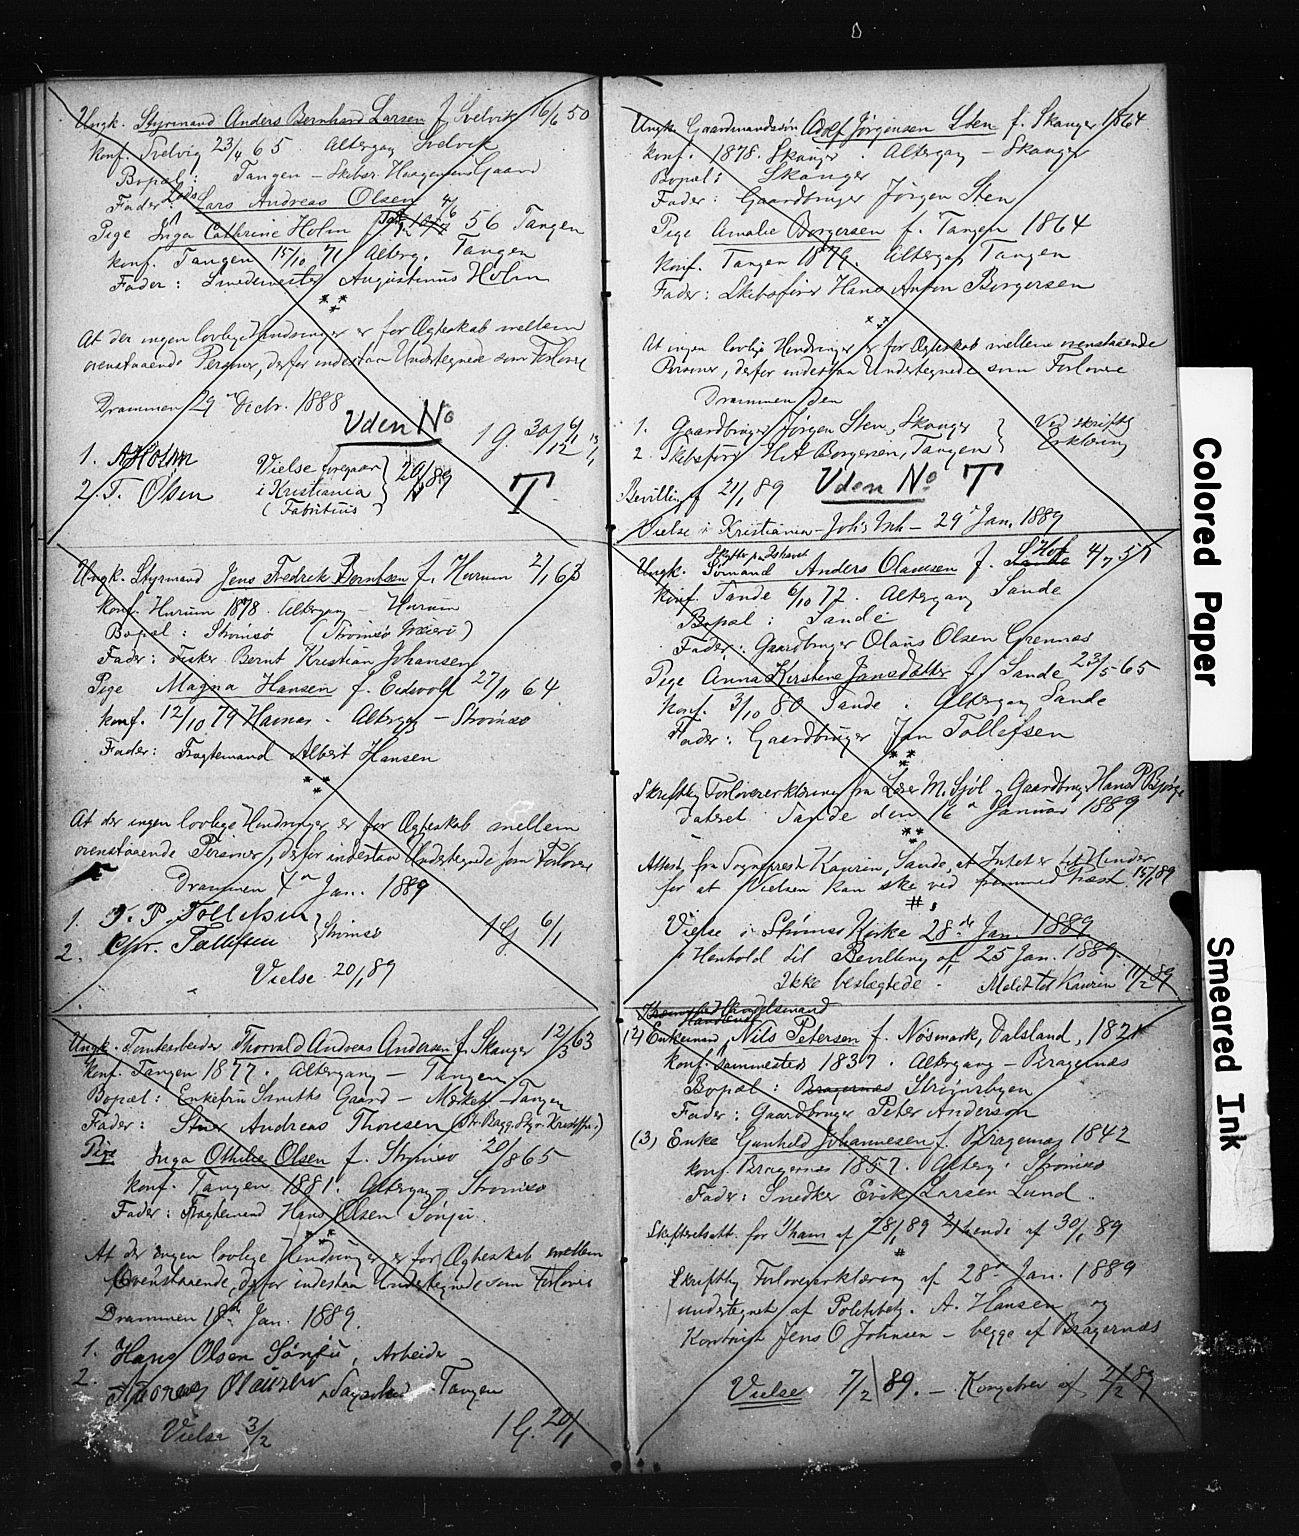 Ungk. Styrmand Anders Bernhard Larsen f. Svelvik 16/6 50
Konf. Svelvig 23/4 65. Altergang Svelvik
Bopæl: Tangen – Skibsr. Haagensens Gaard
Fader: Lods Lars Andreas Olsen
Pige Inga Cathrine Holm 4/6 56 Tangen
Konf. Tangen 15/10 71 Alterg. Tangen
Fader: Smedemester Augustinus Holm
At der ingen lovlige Hindringer er for Ægteskab mellem
ovenstaaende Personer, derfor indestaa Undertegnede som Forlovere
Drammen 29 Decbr. 1888
Uden No
1 G. 30/12 6/1 13/1
1. A Holm
2. T. Olsen
Vielse foregaar
i Kristiania
(Fabritius)
20/1 89
T
Ungk. Styrmand Jens Fredrik Berntsen f. Hurum 2/1 63
Konf. Hurum 1878. Altergang – Hurum
Bopæl: Strømsø (Strømsø Mæieri)
Fader: Fisker Bernt Kristian Johansen
Pige Magna Hansen f. Eidsvold 27/11 64
Konf. 12/10 79 Haknæs. Altergang – Strømsø
Fader: Fragtemand Albert Hansen
At der ingen lovlige Hindringer er for Ægteskab mellem
ovenstaaende Personer, derfor indestaa Undertegnede som Forlovere
Drammen 4de Jan. 1889
1. J. P. Tollefsen
2. Chr. Tollefsen
Strømsø
1 G. 6/1
Vielse 20/1 89
Ungk. Tomtearbeider Thorvald Andreas Andersen f. Skanger 12/3 63
Konf. Tangen 1877. Altergang – Tangen
Bopæl: Enkefru Smiths Gaard – Mærket – Tangen
Fader: Stuer Andreas Thoresen
Pige Inga Othilie Olsen f. Strømsø 20/8 65
Konf. Tangen 1881. Altergang – Strømsø
Fader: Fragtemand Hans Olsen Sønju
At der ingen lovlige Hindringer er for Ægteskab mellem
Ovenstaaende, derfor indestaa Undertegnede som Forlovere
Drammen 18de Jan. 1889.
1. Hans Olsen Sønju, Arbeider
2. Andreas Olausen, Tangen
Vielse 3/2
1 G. 20/1
Ungk. Gaardmandssøn Adolf Jørgensen Sten f. Skanger 1864
Konf. 1878. Skanger. Altergang – Skanger
Bopæl: Skanger
Fader: Gaardbruger Jørgen Sten
Pige Amalie Borgersen f. Tangen 1864
Konf. Tangen 1879. Altergang Tangen
Fader: Skibsfører Hans Anton Borgersen
At ingen lovlige Hindringer er for Ægteskab mellem ovenstaaende
Personer, derfor indestaa Undertegnede som Forlovere
Drammen den
1. Gaardbruger Jørgen Sten, Skanger
2. Skibsfører H. A Borgersen, Tangen
Ved skriftlig
Erklæring
Bevilling af 21/1 89 Uden No T
Vielse i Kristiania – Joh's Kirk – 29de Jan. 1889
Ungk. Sømand Anders Olaussen f. S. Hof 4/7 57
Konf. Sande 6/10 72. Altergang Sande
Bopæl: Sande
Fader: Gaardbruger Olaus Olsen Grennæs
Pige Anna Kirstine Jansdatter f. i Sande 23/5 65
Konf. 3/10 80 Sande. Altergang Sande
Fader: Gaardbruger Jan Tollefsen
Skriftlig Forlovererklæring fra M. Sjøl og Gaardbruger Hans P Bjørge
dateret Sande den 16de Januar 1889
Attest fra Sogneprest Kaurin, Sande, at Intet er til Hinder
for at Vielsen kan ske ved fremmed Præst. 15/1 89
Vielse i Strømsø Kirke 28de Jan. 1889
i Henhold til Bevilling af 25 Jan. 1889
Ikke beslægtede. Meldt til Kaurin 11/2 89
Handelsmand
(2) Enkemand Nils Petersen f. Nøsmark, Dalsland, 1821
Konf. sammesteds 1837. Altergang – Bragernæs
Bopæl: Bragernæs Strømsbyen
Fader: Gaardbruger Peter Anderson
(3) Enke Gunhild Johannesen f. Bragernæs 1842
Konf. Bragernæs 1857. Alterg. Strømsø
Fader: Snedker Erik Larsen Lund
Skifteretsatt. for Ham af 28/1 89 Hende af 30/1 89
Skriftlig Forlovererklæring af 28de Jan. 1889
undertegnet af Politibetj. A. Hansen og
Kontorist Jens O Johnsen – begge af Bragernæs
Vielse 7/2 89. – Kongebrev af 2/2 89
Colored Paper
Smeared Ink